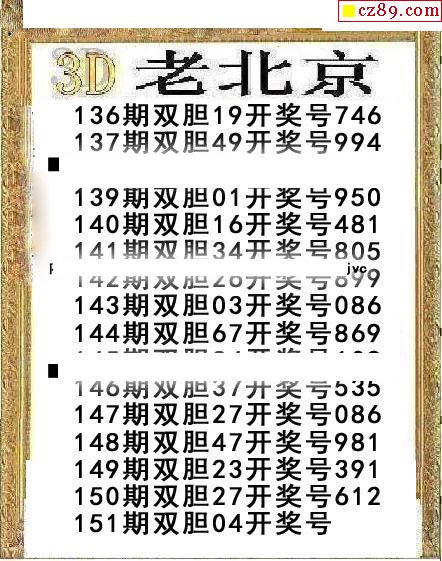 cz89.com
3D 老北京
136期双胆19开奖号746
137期双胆49开奖号994
139期双胆01开奖号950
140期双胆16开奖号481
141期双胆34开奖号805
jvc
142期双胆26开奖号899
143期双胆03开奖号086
144期双胆67开奖号869
146期双胆37开奖号535
147期双胆27开奖号086
148期双胆47开奖号981
149期双胆23开奖号391
150期双胆27开奖号612
151期双胆04开奖号